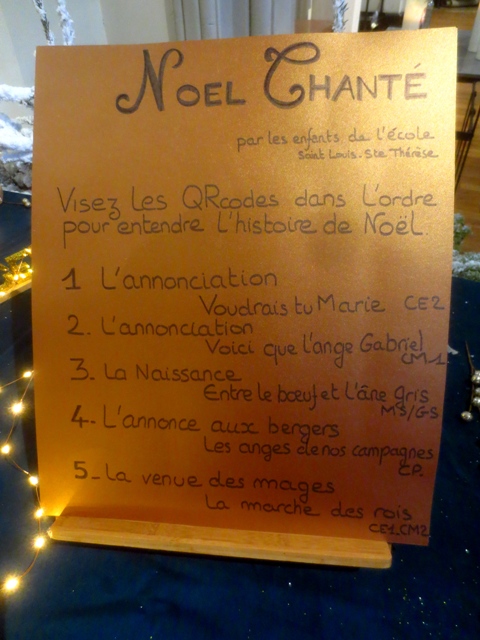 NOEL CHANTÉ
par les enfants de l'école
Saint Louis-Ste Thérèse
Visez les QRcodes dans l'ordre
pour entendre l'histoire de Noël.
1 L'annonciation
Voudrais tu Marie CE2
2. L'annonciation
Voici que l'ange Gabriel
CM1
3. La Naissance
Entre le bœuf et l'âne gris
MS/GS
4. L'annonce aux bergers
Les anges de nos campagnes
CP.
5. La venue des mages
La marche des rois
CE1 CM2